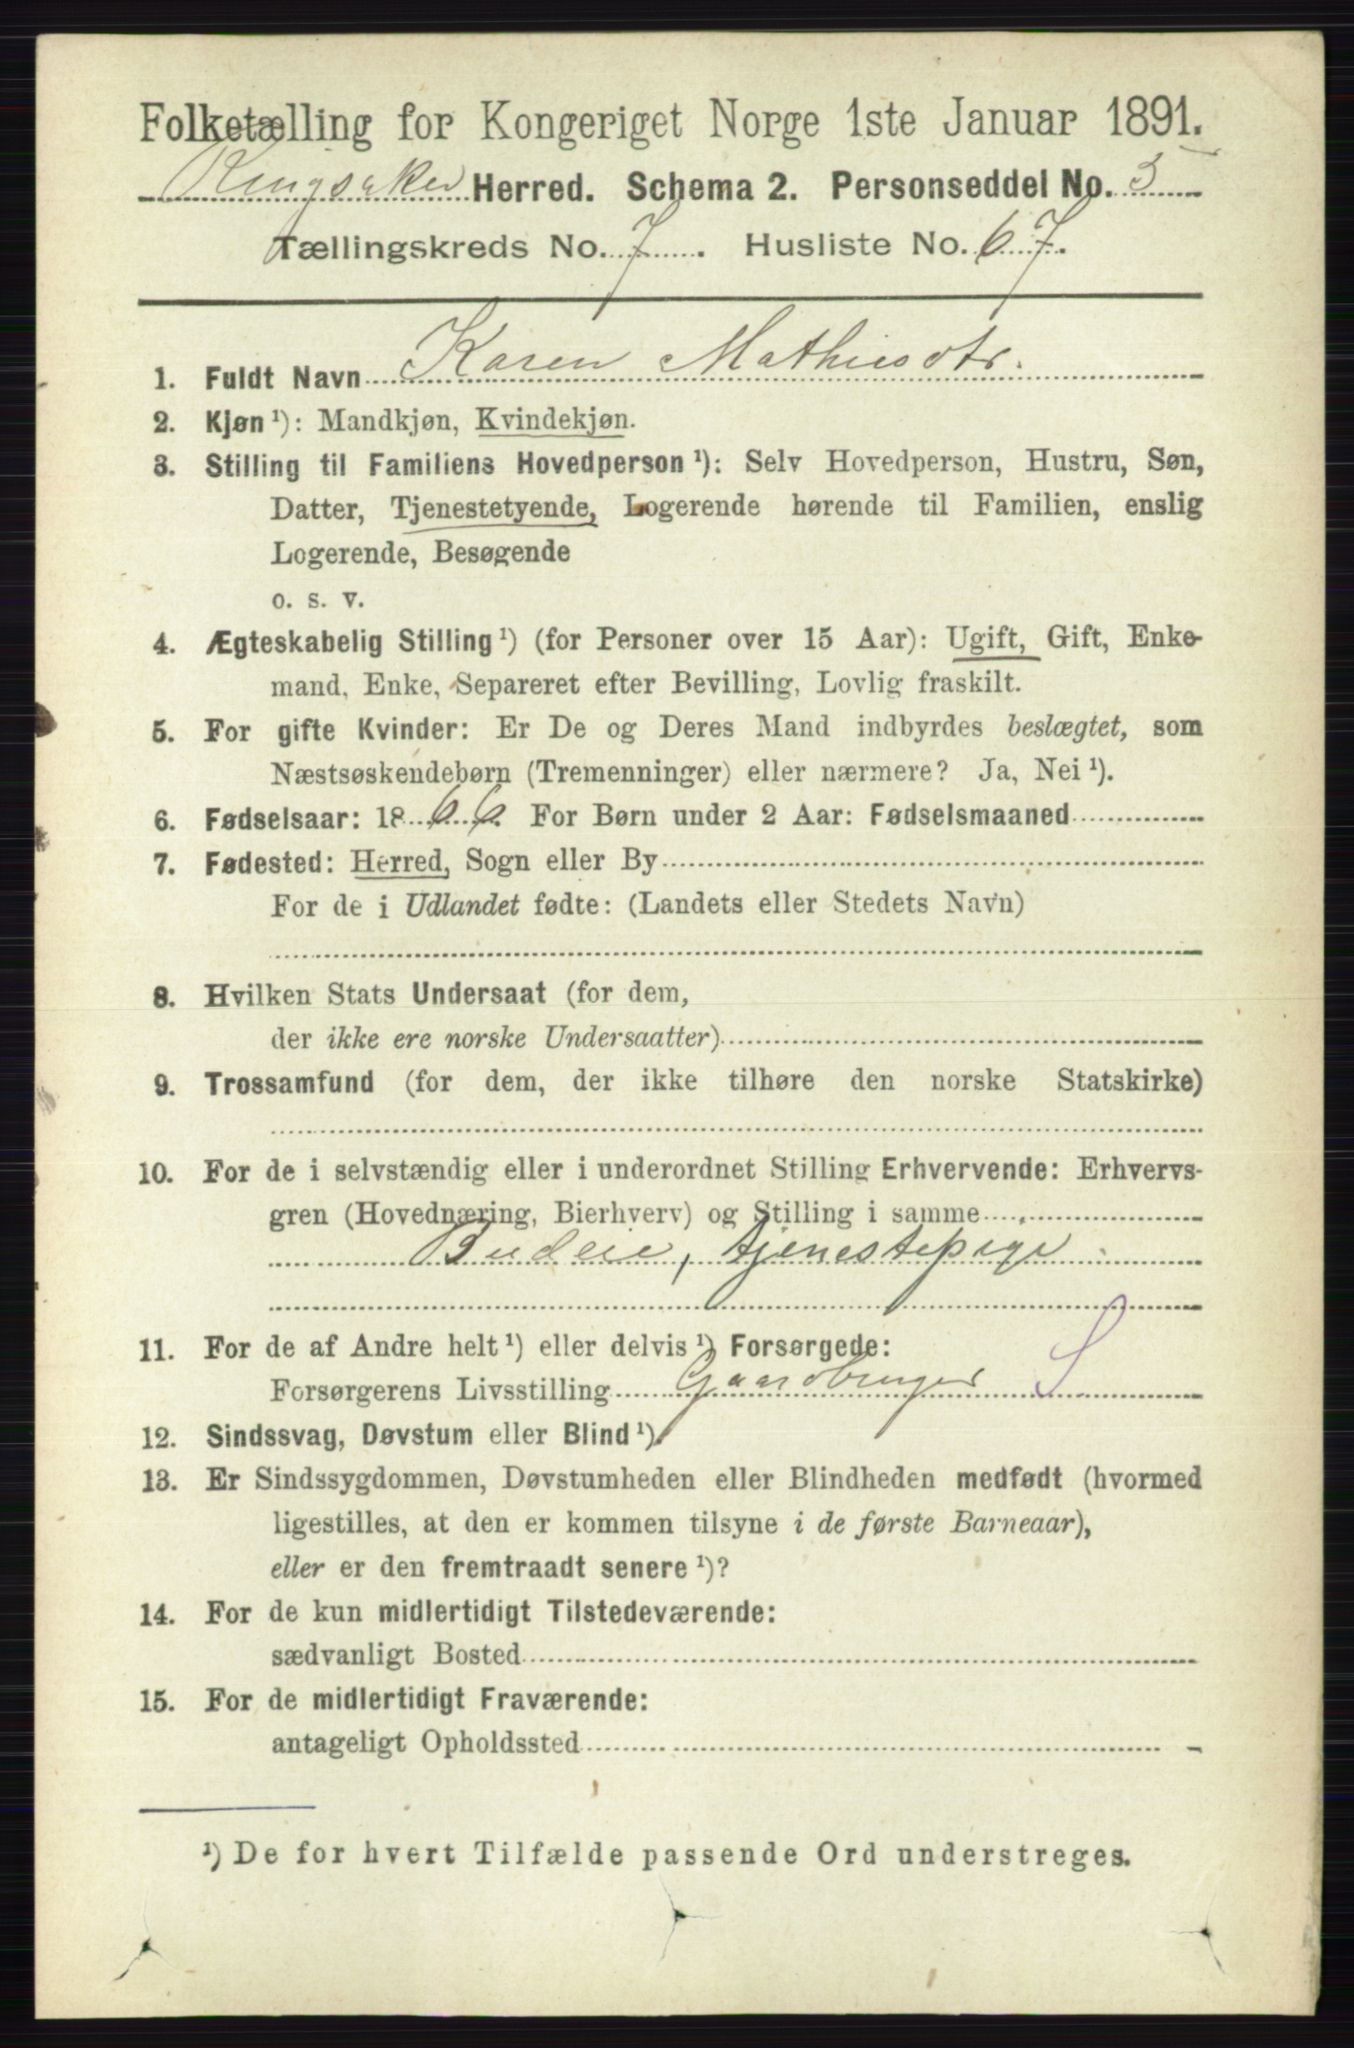 Folketælling for Kongeriget Norge 1ste Januar 1891.
Ringsaker Herred. Schema 2. Personseddel No. 5
Tællingskreds No. 7. Husliste No. 67.
1. Fuldt Navn Karen Mathiesdtr.
2. Kjøn¹): Mandkjøn, Kvindekjøn.
3. Stilling til Familiens Hovedperson¹): Selv Hovedperson, Hustru, Søn,
Datter, Tjenestetyende, Logerende hørende til Familien, enslig
Logerende, Besøgende
o. s. v.
4. Ægteskabelig Stilling¹) (for Personer over 15 Aar): Ugift, Gift, Enke-
mand, Enke, Separeret efter Bevilling, Lovlig fraskilt.
5. For gifte Kvinder: Er De og Deres Mand indbyrdes beslægtet, som
Næstsøskendebørn (Tremenninger) eller nærmere? Ja, Nei¹).
6. Fødselsaar: 1866. For Børn under 2 Aar: Fødselsmaaned
7. Fødested: Herred, Sogn eller By
For de i Udlandet fødte: (Landets eller Stedets Navn)
8. Hvilken Stats Undersaat (for dem,
der ikke ere norske Undersaatter)
9. Trossamfund (for dem, der ikke tilhøre den norske Statskirke)
10. For de i selvstændig eller i underordnet Stilling Erhvervende: Erhvervs-
gren (Hovednæring, Bierhverv) og Stilling i samme
Budeie, tjenestepige
11. For de af Andre helt¹) eller delvis¹) Forsørgede:
Forsørgerens Livsstilling Gaardbruger S
12. Sindssvag, Døvstum eller Blind¹).
13. Er Sindssygdommen, Døvstumheden eller Blindheden medfødt (hvormed
ligestilles, at den er kommen tilsyne i de første Barneaar),
eller er den fremtraadt senere¹)?
14. For de kun midlertidigt Tilstedeværende:
sædvanligt Bosted
15. For de midlertidigt Fraværende:
antageligt Opholdssted
¹) De for hvert Tilfælde passende Ord understreges.